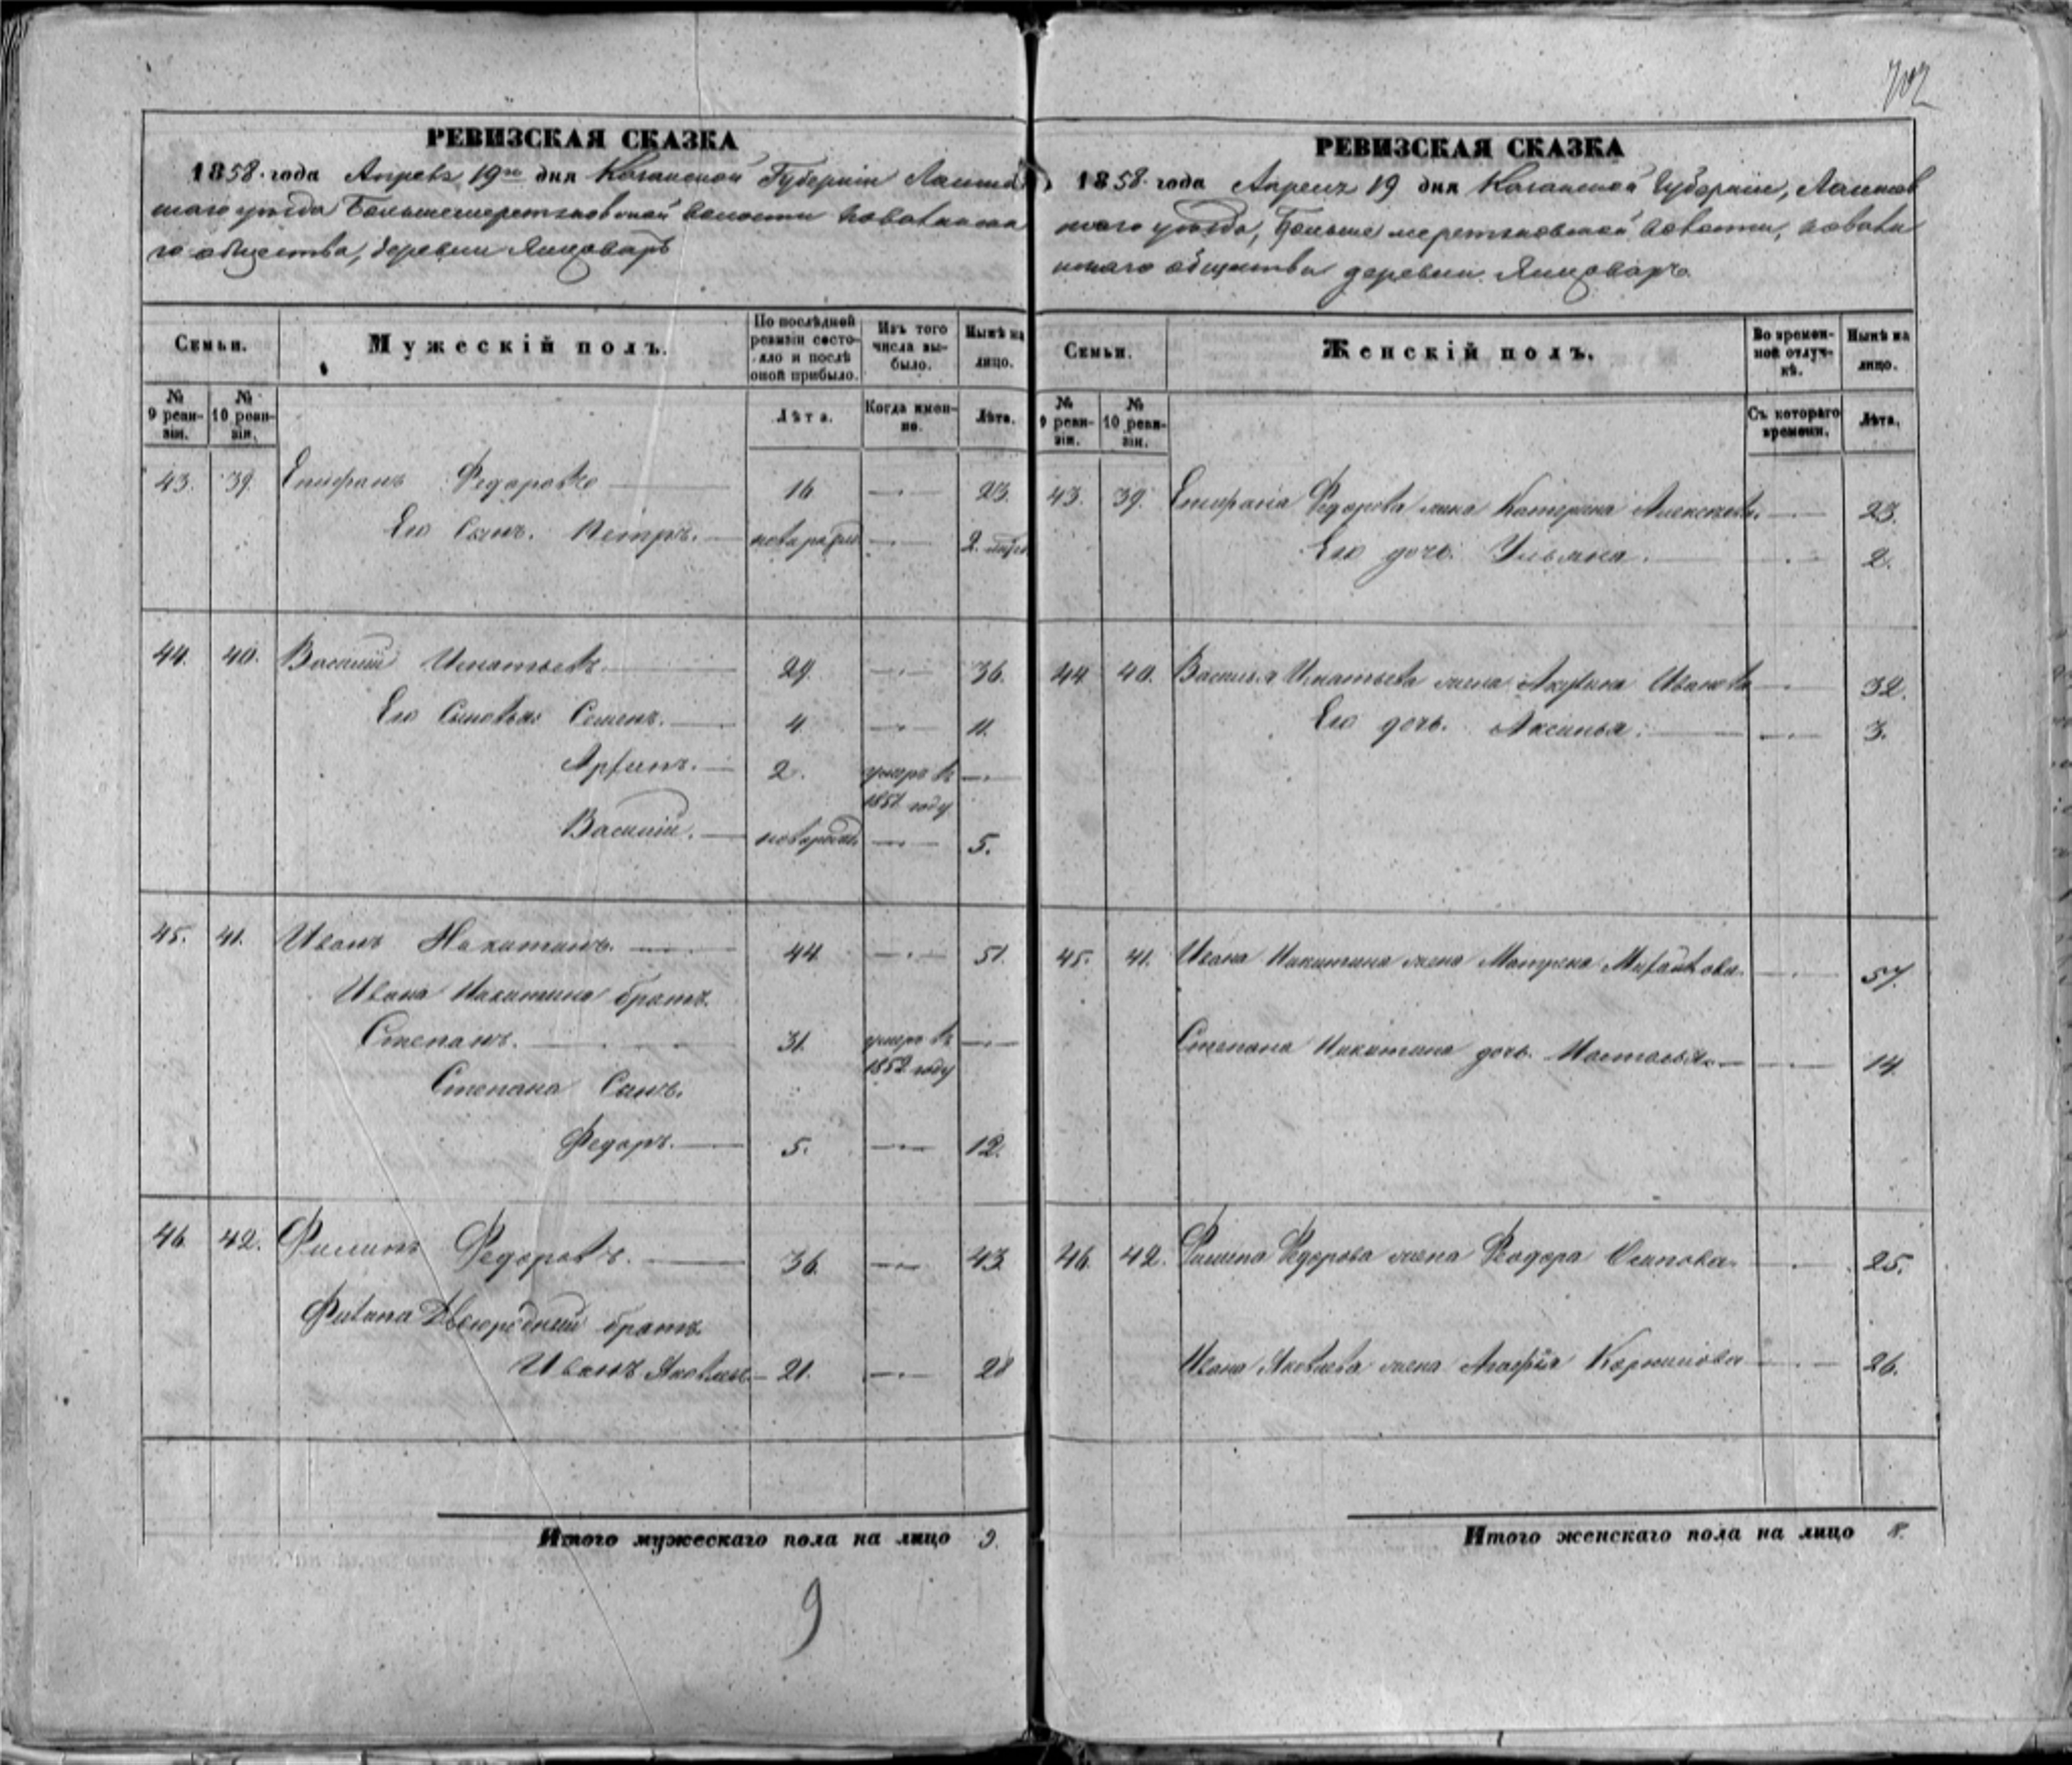 702
РЕВИЗСКАЯ СКАЗКА
1858 года Апреля 19го дня Казанской Губернiи Лаише
скаго уѣзда
го общества, деревни Янцоваръ
Семьи.
Мужескiй полъ.
По послѣдней ревизiи состояло и послѣ оной прибыло.
Изъ того числа выбыло.
Нынѣ на лицо.
№ 9 ревизiи.
№ 10 ревизiи.
Лѣта.
Когда именно.
Лѣта.
43. 39. Епифанъ Федоровъ 16 23.
Его Сынъ. Петръ. новорожд 2.
44. 40. Василiй Игнатьевъ. 29. 36.
Его Сыновья: Семенъ. 4 11.
Архипъ. 2. умеръ въ
1851 году
Василiй. новорожд. 5.
45. 41. Иванъ Никитинъ. 44 51.
Ивана Никитина братъ.
Степанъ. 31. умеръ въ
1852 году
Степана Сынъ.
Федоръ. 5. 12.
46. 42. Филипъ Федоровъ. 36. 43.
Филипа Двоюродный братъ
Иванъ Яковлев 21. 28
Итого мужескаго пола на лицо 9.
9
РЕВИЗСКАЯ СКАЗКА
1858 года Апреля 19 дня Казанской Губернiи, Лаишев
скаго уѣзда,
скаго общества деревни Янцоваръ.
Семьи.
Женскiй полъ.
Во временной отлучкѣ.
Нынѣ на лицо.
№ 9 ревизiи.
№ 10 ревизiи.
Съ котораго времени.
Лѣта.
43. 39. Епифана Федорова жена Катерина Алексеева. 23.
Его дочь. Ульяна. 2.
44 40. Василья Игнатьева жена Акулина Иванова 32.
Его дочь. Аксинья. 3.
45. 41. Ивана Никитина жена Матрена Михайлова. 57.
Степана Никитина дочь. Настасья. 14.
46. 42. Филипа Федорова жена Федора Осипова. 25.
Ивана Яковлева жена Агафья Корнилова 26.
Итого женскаго пола на лицо 8.